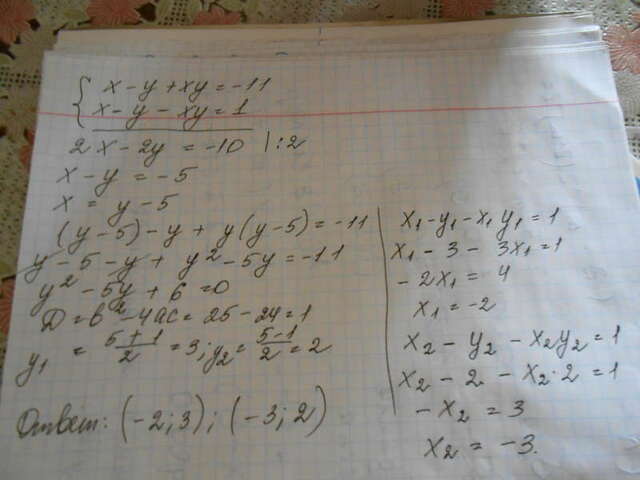 x - y + xy = -11
x - y - xy = 1
2x - 2y = -10 |:2
x - y = -5
x = y - 5
(y-5) - y + y(y-5) = -11
y - 5 - y + y² - 5y = -11
y² - 5y + 6 = 0
D = b² - 4ac = 25 - 24 = 1
y₁ = (5+1)/2 = 3; y₂ = (5-1)/2 = 2
Ответ: (-2; 3); (-3; 2)
x₁ - y₁ - x₁y₁ = 1
x₁ - 3 - 3x₁ = 1
-2x₁ = 4
x₁ = -2
x₂ - y₂ - x₂y₂ = 1
x₂ - 2 - x₂·2 = 1
-x₂ = 3
x₂ = -3.